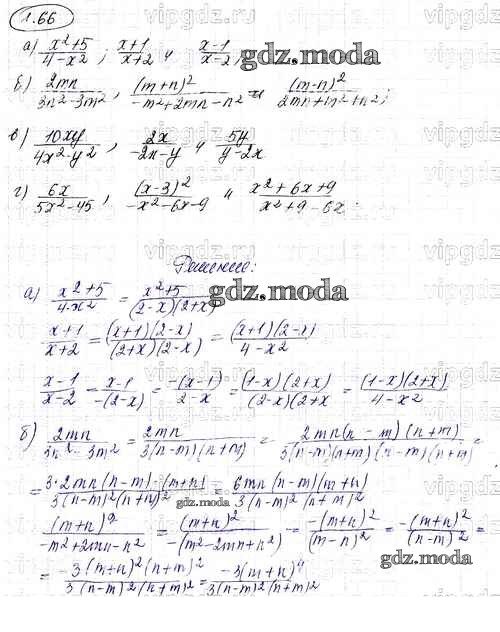 1.66
а) (x²+5)/(4-x²); (x+1)/(x+2) и (x-1)/(x-2);
б) 2mn/(3n²-3m²), (m+n)²/(-m²+2mn-n²) и (m-n)²/(2mn+m²+n²);
в) 10xy/(4x²-y²), 2x/(-2x-y) и 5y/(y-2x)
г) 6x/(5x²-45), (x-3)²/(-x²-6x-9) и (x²+6x+9)/(x²+9-6x).
Решение:
а) (x²+5)/(4-x²) = (x²+5)/((2-x)(2+x))
(x+1)/(x+2) = ((x+1)(2-x))/((2+x)(2-x)) = ((x+1)(2-x))/(4-x²)
(x-1)/(x-2) = (x-1)/(-(2-x)) = (-(x-1))/(2-x) = ((1-x)(2+x))/((2-x)(2+x) = ((1-x)(2+x))/(4-x²)
б) 2mn/(3n²-3m²) = 2mn/(3(n-m)(n+m)) = (2mn(n-m)(n+m))/(3(n-m)(n+m)(n-m)(n+m)) =
= (3·2mn(n-m)·(m+n))/(3(n-m)²(n+m)²) = (6mn(n-m)(m+n))/(3(n-m)²(n+m)²)
(m+n)²/(-m²+2mn-n²) = (m+n)²/(-(m²-2mn+n²)) = (-(m+n)²)/(m-n)² = (-(m+n)²)/(n-m)² =
= (-3(m+n)²(n+m)²)/(3(n-m)²(n+m)²) = (-3(m+n)⁴)/(3(n-m)²(n+m)²)
gdz.moda
gdz.moda
gdz.moda
gdz.moda
gdz.moda
vipgdz.ru